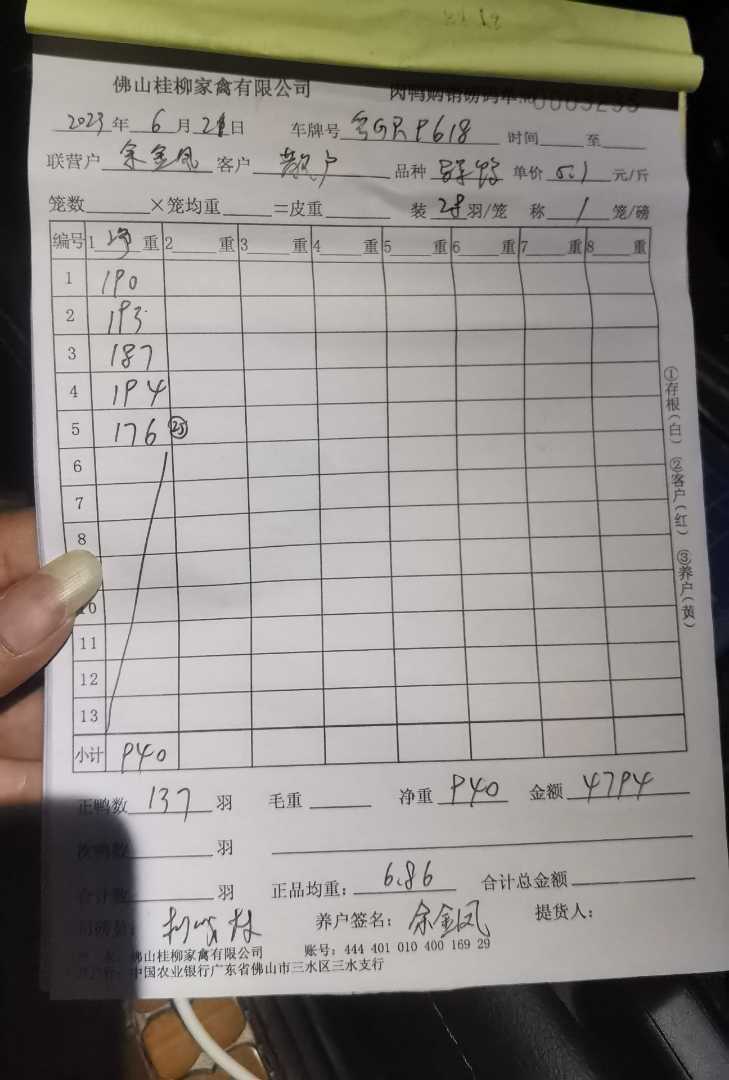 佛山桂柳家禽有限公司 肉鸭购销磅码单
2023年 6月 21日 车牌号 粤GRP618 时间 至
联营户 余金凤 客户 散户 品种 单价 5.1 元/斤
笼数 ×笼均重 =皮重 装 28 羽/笼 称 1 笼/磅
编号 1 净 重 2 重 3 重 4 重 5 重 6 重 7 重 8 重
1 190
2 193
3 187
4 194
5 176 25
6
7
8
10
11
12
13
小计 940
①存根(白) ②客户(红) ③养户(黄)
正鸭数 137 羽 毛重 净重 940 金额 4794
次鸭数 羽
合计数 羽 正品均重: 6.86 合计总金额
司磅员: 养户签名: 余金凤 提货人:
佛山桂柳家禽有限公司 账号: 444 401 010 400 169 29
中国农业银行广东省佛山市三水区三水支行